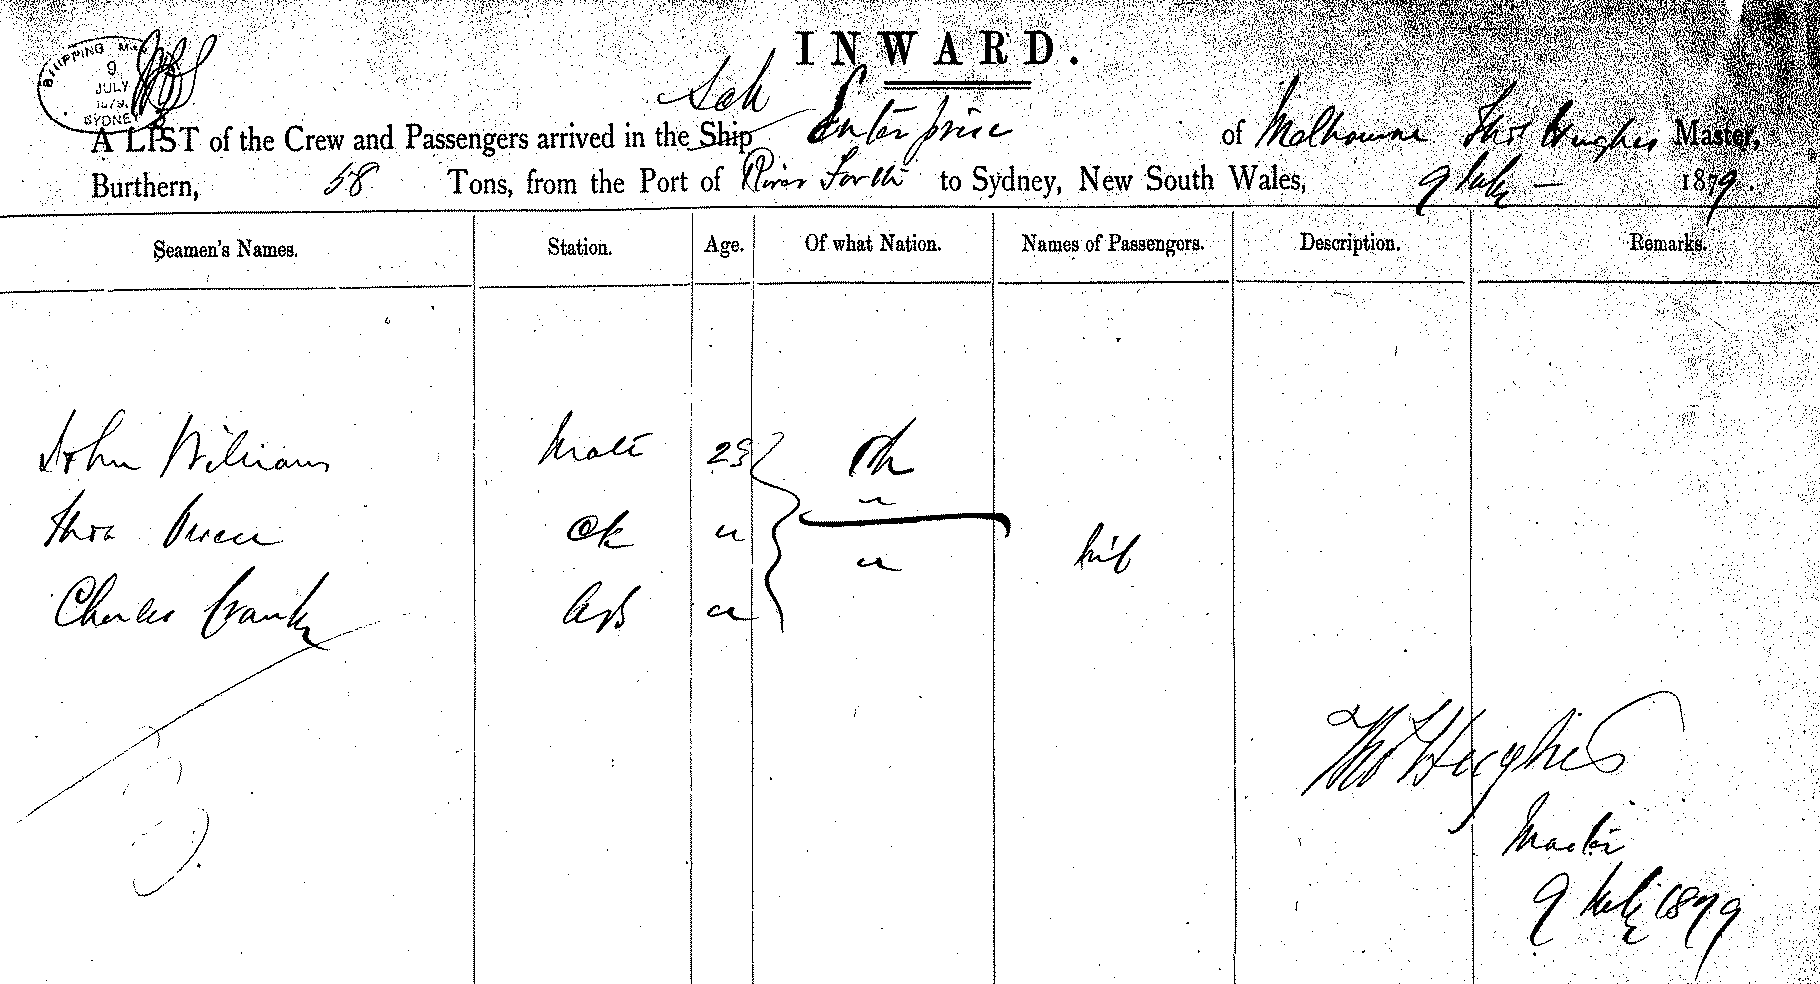 SHIPPING MA
9
JULY
1879.
SYDNEY
INWARD.
Sch
A LIST of the Crew and Passengers arrived in the Ship Enterprise of Melbourne Thos Hughes Master,
Burthern, 58 Tons, from the Port of River Forth to Sydney, New South Wales, 9 July 1879.
Seamen's Names. Station. Age. Of what Nation. Names of Passengers. Description. Remarks.
John Williams Mate 29
Thos Ck "
"
Nil
Charles AB "
Thos Hughes
Master
9 July 1879